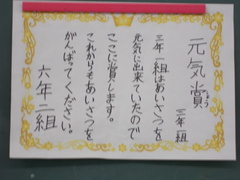 元気賞
三年一組
三年一組はあいさつを
元気に出来ていたので
ここに賞します。
これからもあいさつを
がんばってください。
六年二組